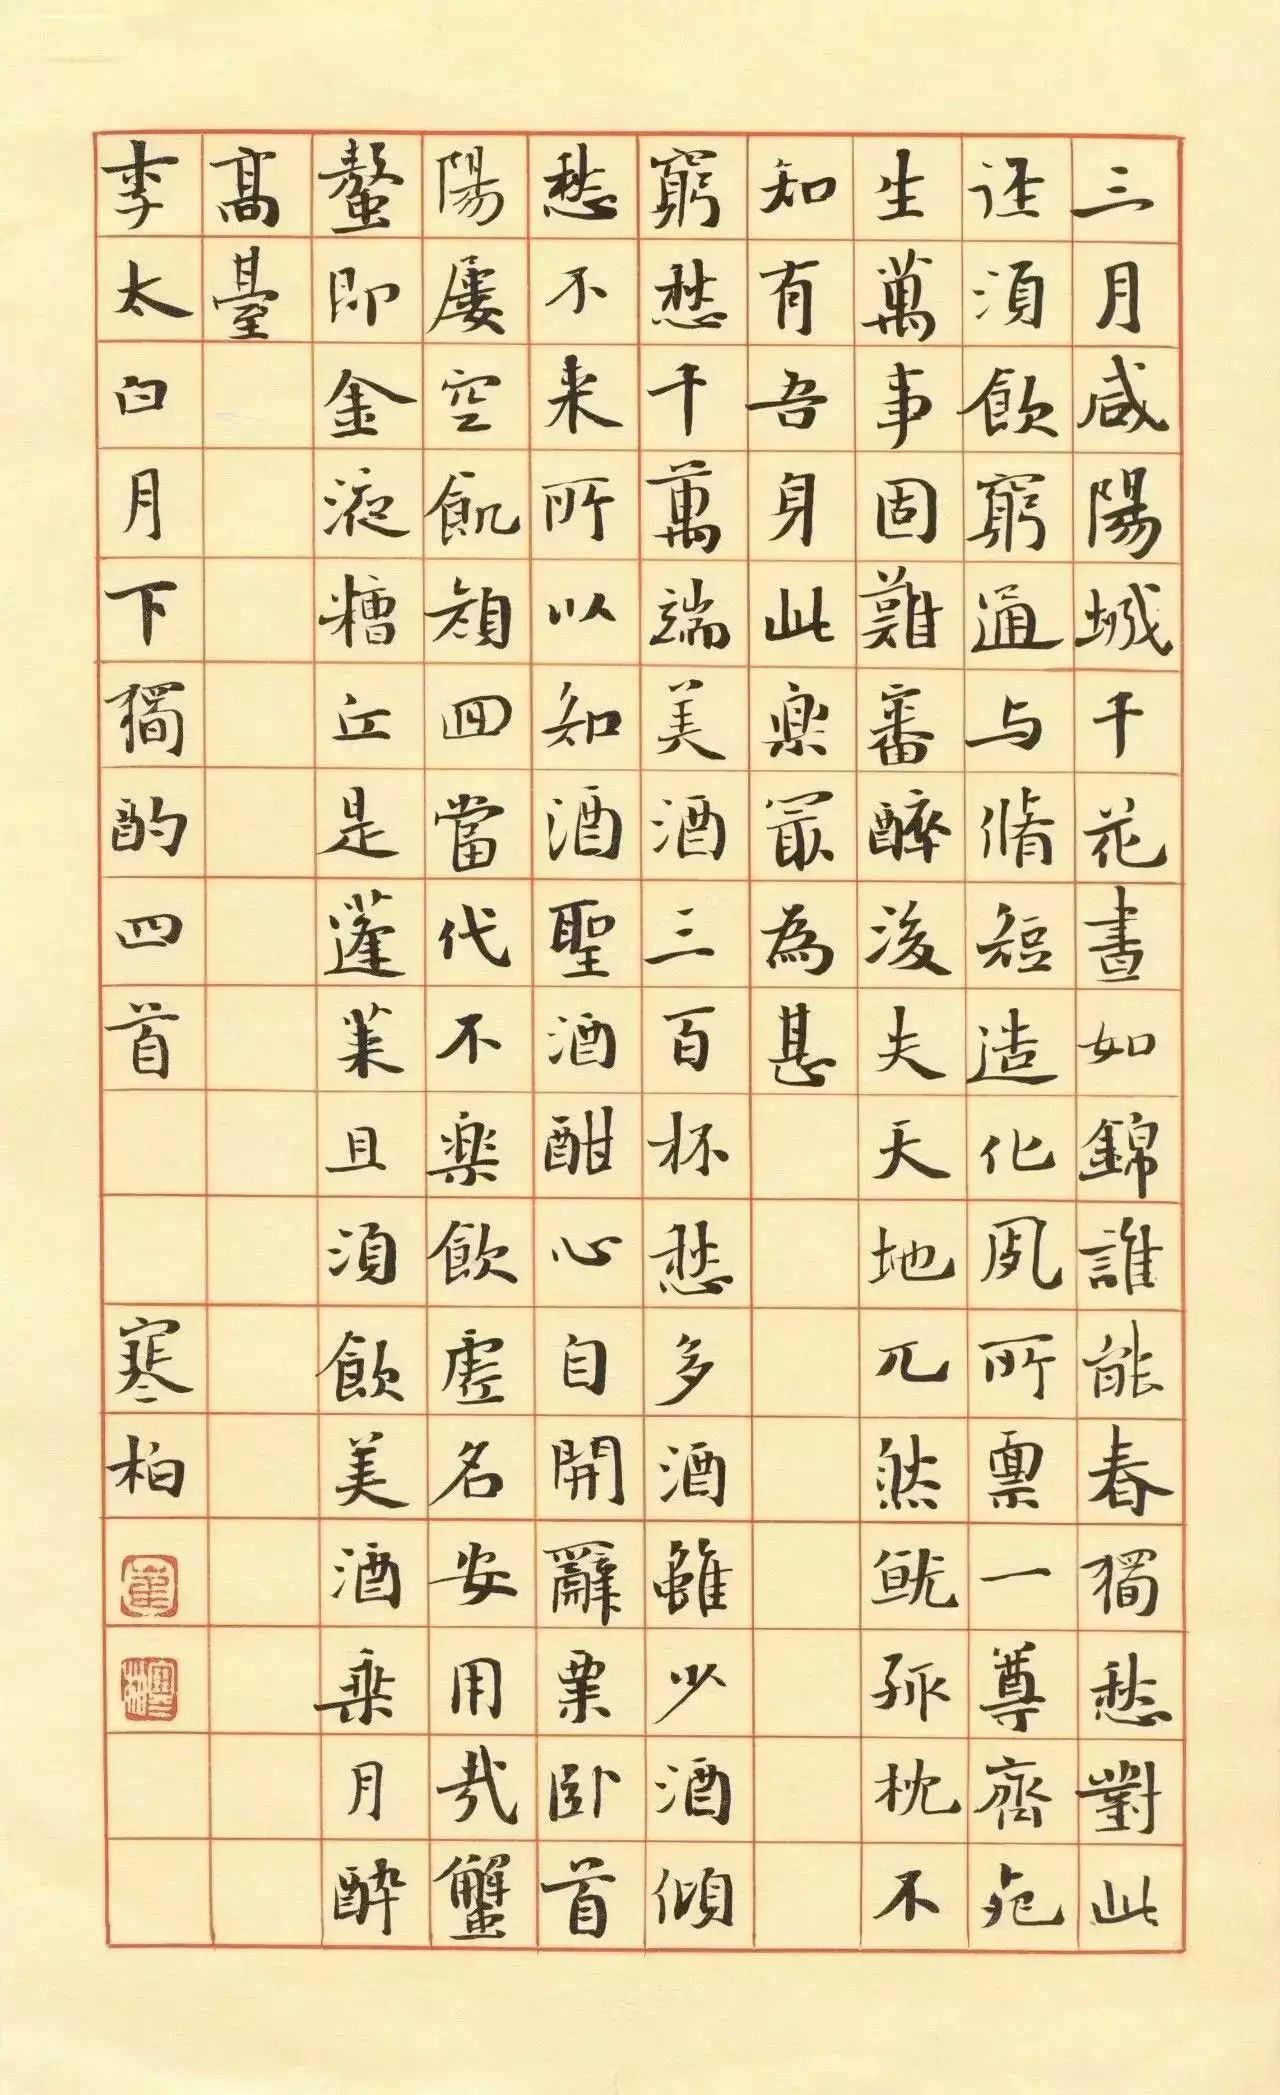 三月咸陽城千花晝如錦誰能春獨愁對此
径須飲窮通与脩短造化夙所稟一尊齊死
生萬事固難審醉後失天地兀然就孤枕不
知有吾身此楽冣為甚
窮愁千萬端美酒三百杯愁多酒雖少酒傾
愁不来所以知酒聖酒酣心自開辭粟卧首
陽屢空飢顔回當代不楽飲虛名安用哉蟹
螯即金液糟丘是蓬莱且須飲美酒乗月醉
髙臺
李太白月下獨酌四首 寒柏